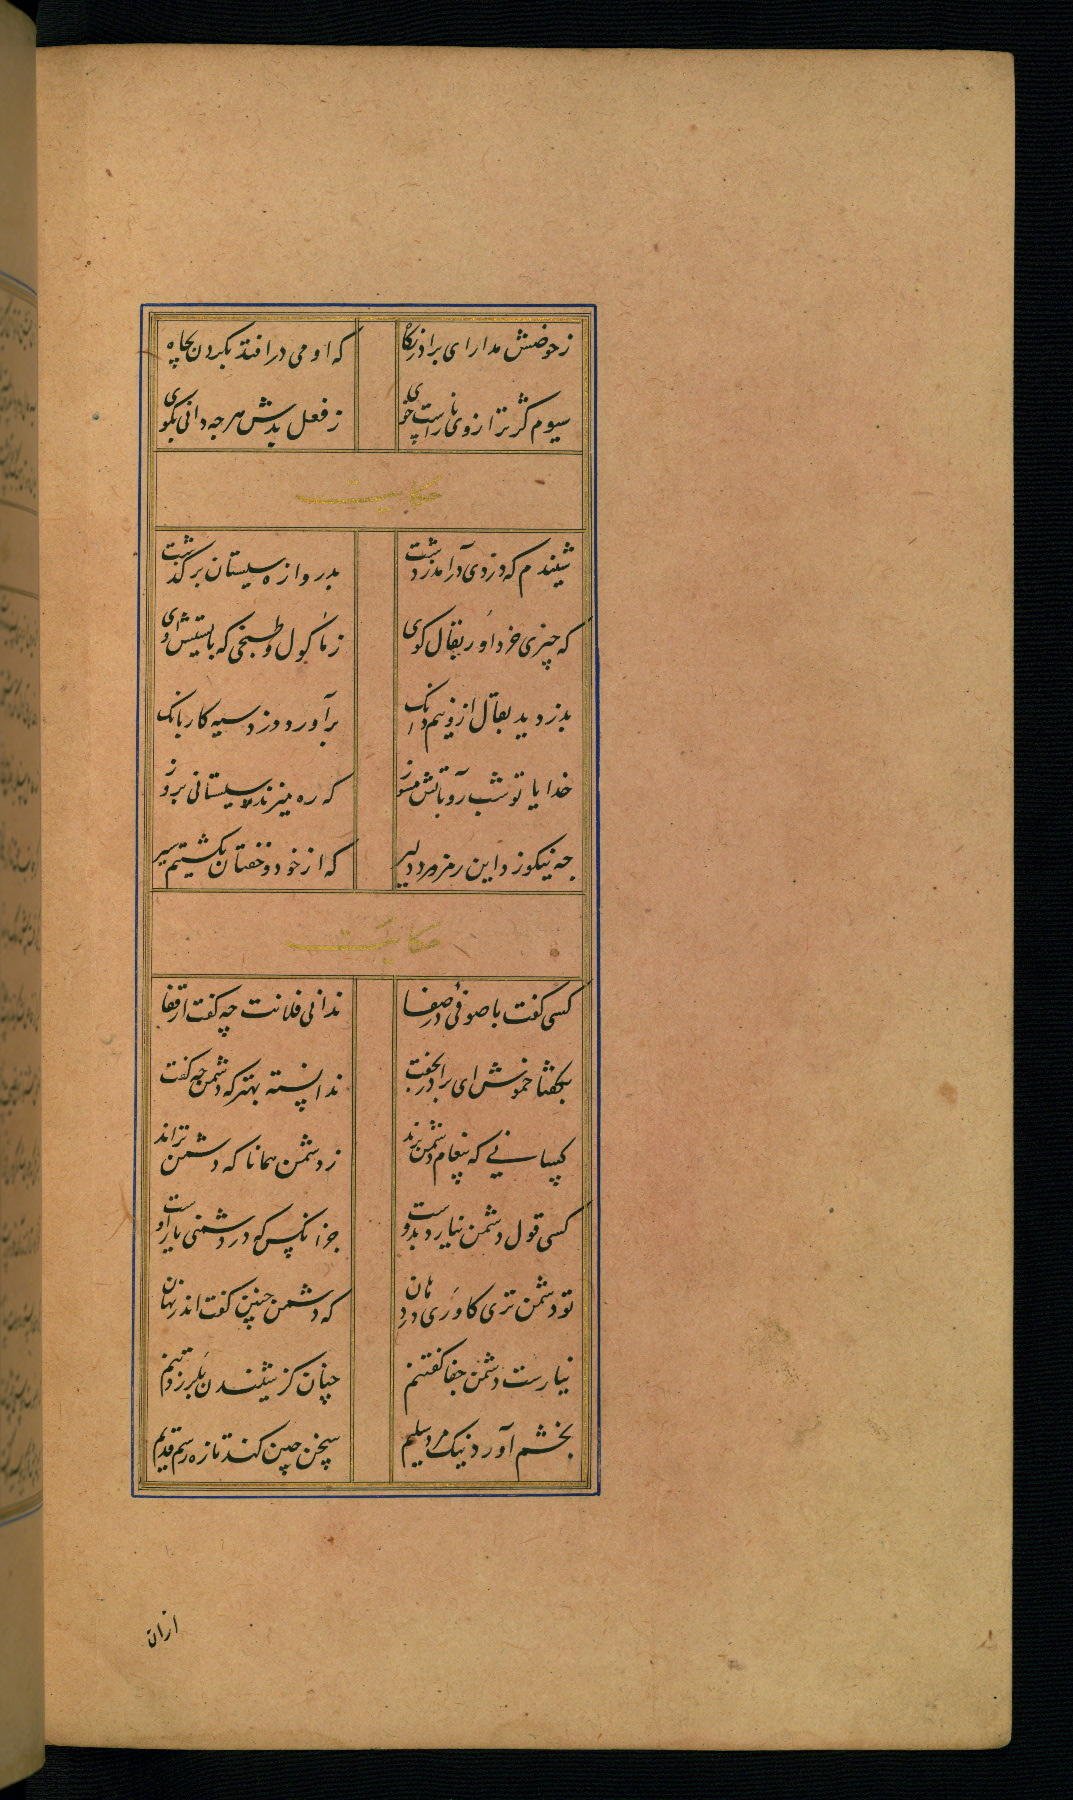 ز حوضش مدار ای برادر نگاه که او می درافتد بگردن بچاه
سیوم کژ ترازوی ناراست خوی ز فعل بدش هرچه دانی بگوی
حکایت
شنیدم که دزدی درآمد ز دشت بدروازه سیستان برگذشت
که چیزی خرد او ز بقال کوی ز ماکول و طبخی که بایستش اوی
بدزدید بقال ازو نیم دانگ برآورد دزد سیه کار بانگ
خدایا تو شب رو بآتش مسوز که ره میزند سیستانی بروز
چه نیکو زد این رمز مرد دلیر که از خود و خفتان نگشتیم سیر
حکایت
کسی گفت با صوفئی در صفا ندانی فلانت چه گفت از قفا
بگفتا خموش ای برادر بخفت ندانسته بهتر که دشمن چه گفت
کسانی که پیغام دشمن برند ز دشمن همانا که دشمن ترند
کسی قول دشمن نیارد بدوست جز آنکس که در دشمنی یار اوست
تو دشمن تری کاوری در دهان که دشمن چنین گفت اندر نهان
نیارست دشمن جفا گفتنم چنان کز شنیدن بلرزد تنم
بخشم آورد نیک مرد سلیم سخن چین کند تازه رسم قدیم
ازان